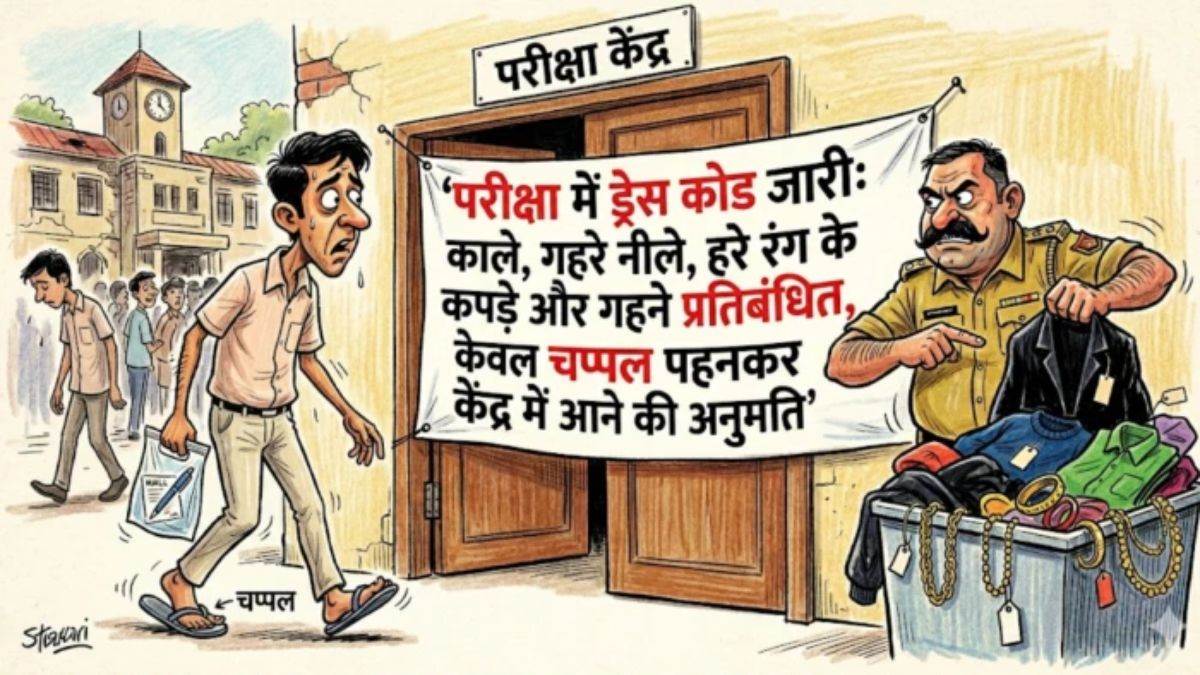 परीक्षा केंद्र
‘परीक्षा में ड्रेस कोड जारीः
काले, गहरे नीले, हरे रंग के
कपड़े और गहने प्रतिबंधित,
केवल चप्पल पहनकर
केंद्र में आने की अनुमति’
चप्पल